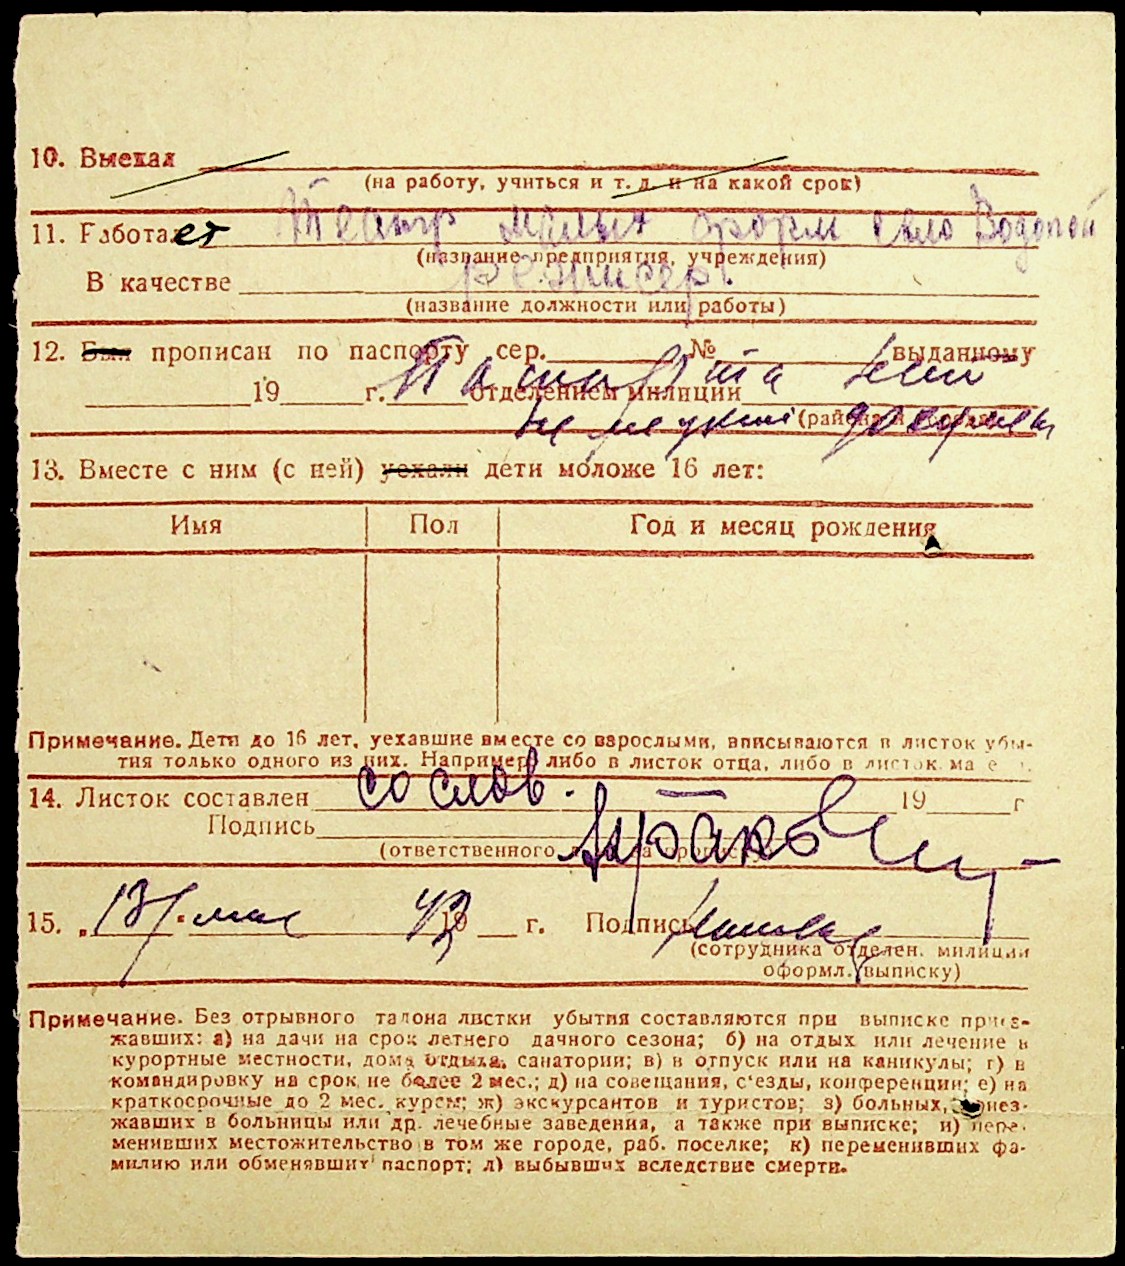 10. Выехал
(на работу, учиться и т. д. и на какой срок)
11. Работает Театр малых форм село Водопой
(название предприятия, учреждения)
В качестве режисер.
(название должности или работы)
12. Был прописан по паспорту сер. № выданному
19 г. отделением милиции
Паспорта нет
немецкий документ
13. Вместе с ним (с ней) уехали дети моложе 16 лет:
Имя Пол Год и месяц рождения
Примечание. Дети до 16 лет, уехавшие вместе со взрослыми, вписываются в листок убы-
тия только одного из них. Например либо в листок отца, либо в листок
14. Листок составлен со слов. 19 г
Подпись
(ответственного
15. „13“ мая 43 19 г. Подпись
(сотрудника отделен. милиции
оформл. выписку)
Примечание. Без отрывного талона листки убытия составляются при выписке приез-
жавших: а) на дачи на срок летнего дачного сезона; б) на отдых или лечение в
курортные местности, дома отдыха, санатории; в) в отпуск или на каникулы; г) в
командировку на срок не более 2 мес.; д) на совещания, с'езды, конференции; е) на
краткосрочные до 2 мес. курсы; ж) экскурсантов и туристов; з) больных, приез-
жавших в больницы или др. лечебные заведения, а также при выписке; и) пере-
менивших местожительство в том же городе, раб. поселке; к) переменивших фа-
милию или обменявших паспорт; л) выбывших вследствие смерти.